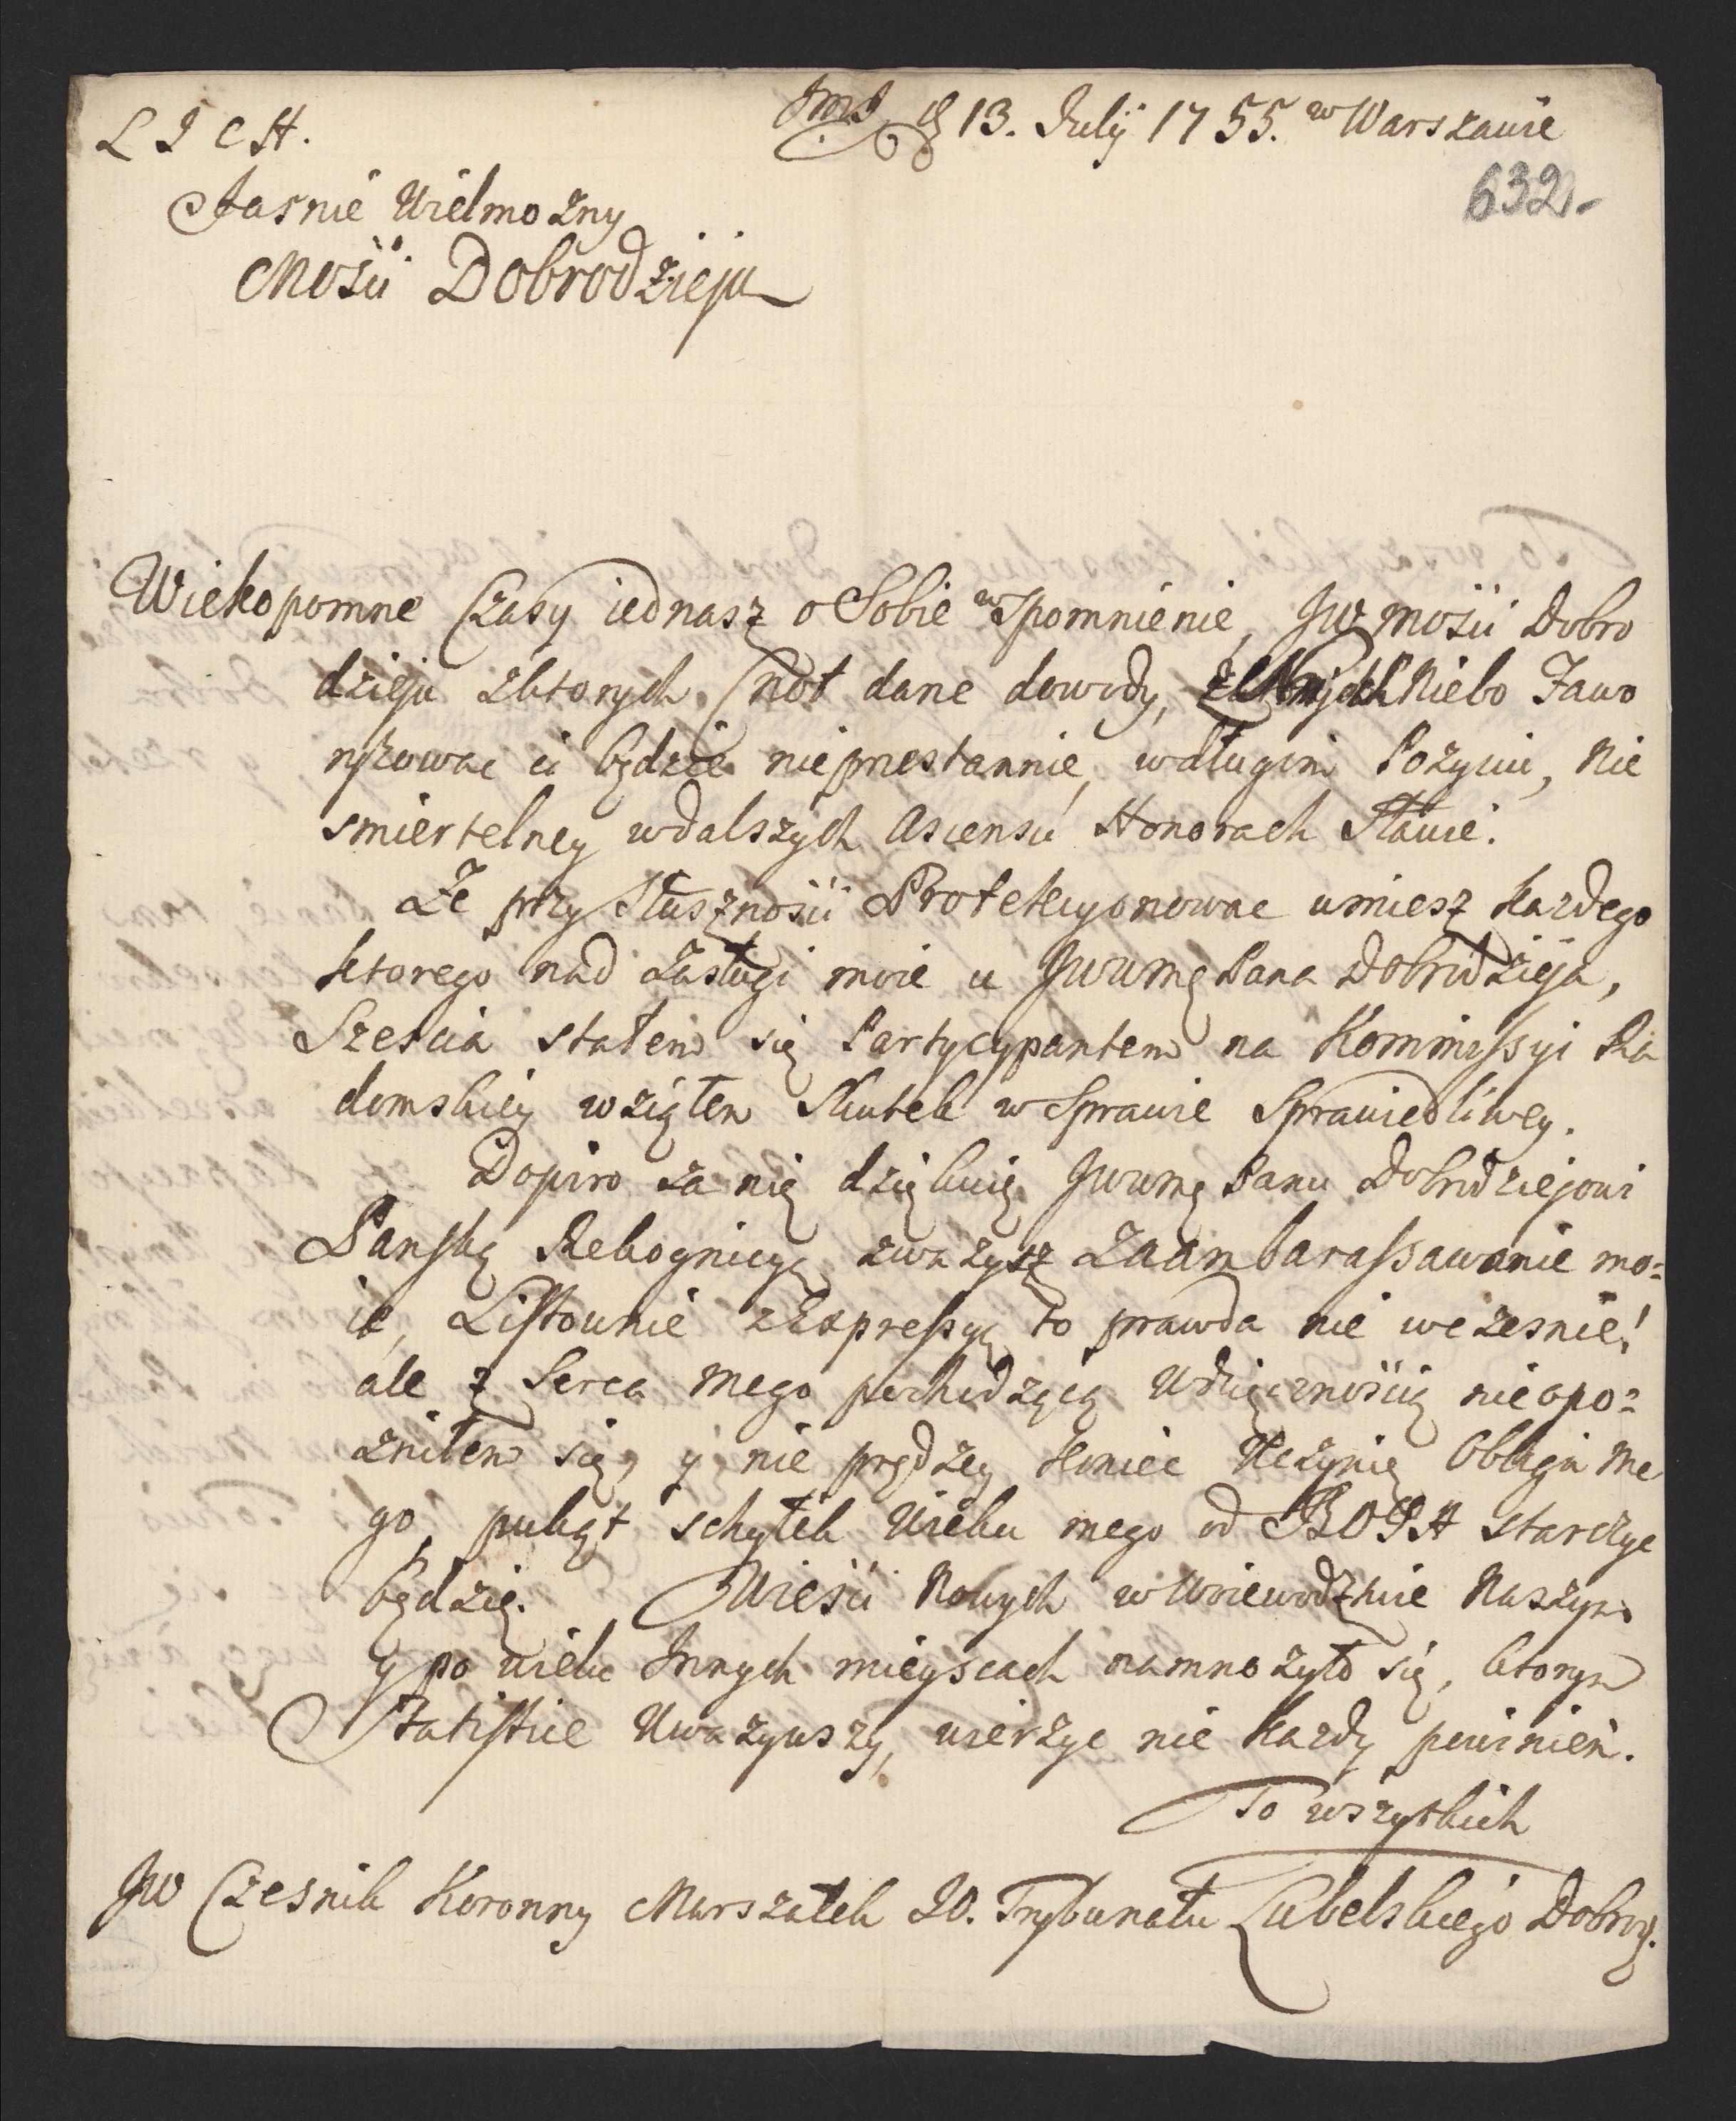 L J C H.
d 13. Julij 1755. w Warszawie
632.
Jasnie Wielmozny
Mości Dobrodzieju
Wiekopomne Czasy iednasz o Sobie wspomnienie, JW Mości Dobro
dzieju z ktorych Cnot dane dowody, Niebo Fawo
ryzowac ci będzie nieprzestannie, w długim Pozyciu, Nie
smiertelney w dalszych Ascensu Honorach Sławie.
Ze przy Słuszności Protekcyonowac umiesz kazdego
ktorego nad zasługi moie u JWWMę Pana Dobrodzieja,
Szescia stałem się Partycypantem na Kommissyi Ra
domskiey wziąłem Skutek w Sprawie Sprawiedliwey.
Dopiro za nię dziękuię JWWMę Panu Dobrodziejowi
Pańską Rekognicyą zwazysz Zaambarassawanie mo=
ie, Listownie z Expressyą to prawda nie wczesnie!
ale z Serca mego pochodzącą Wdzięcznością nie opo=
zniłem się, y nie prędzey koniec Uczynię Obligu me
go, pukąt schyłek Wieku mego od BOGA starczyc
będzie. Wieści Nowych w Woiewodztwie Naszym
y po wielu Innych mieyscach namnozyło się, ktorym
Statistice Uwazywszy, wierzyc nie kazdy powinien.
To wszytkich
JW Czesnik Koronny Marszałek JO. Trybunału Lubelskiego Dobrog.